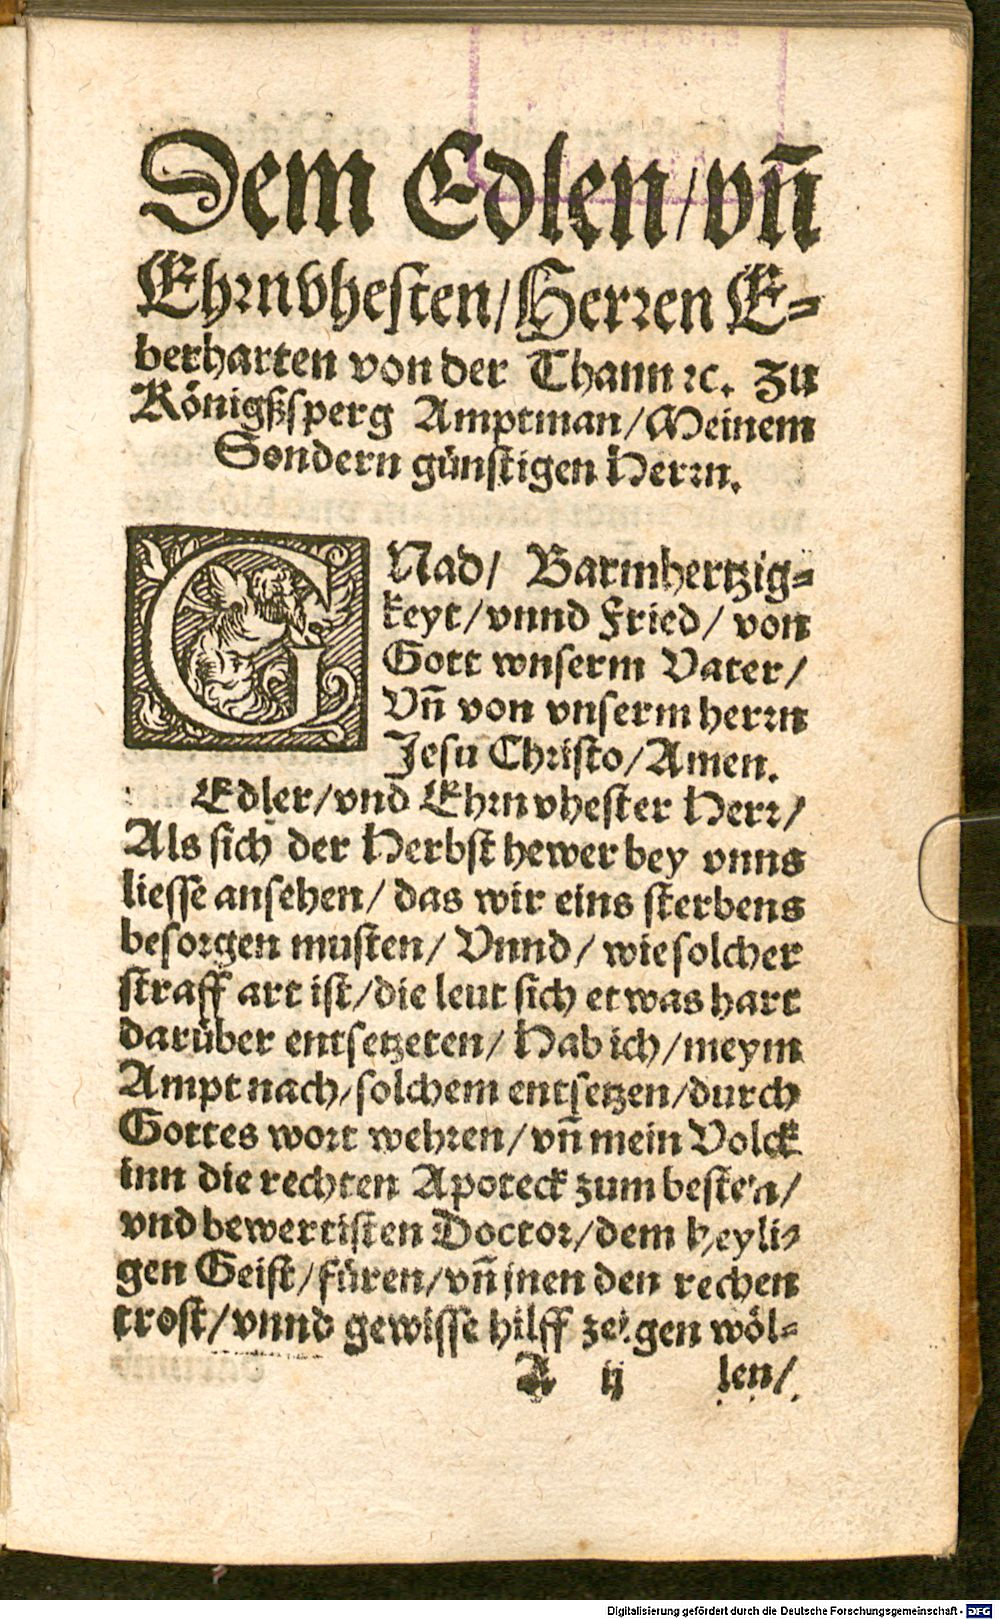 Dem Edlen/ vñ
Ehrnvhesten/ Herren E-
berharten von der Thann ꝛc. zu
Königßsperg Amptman/ Meinem
Sondern günstigen Herrn.
GNad/ Barmhertzig-
keyt/ vnnd Fried/ von
Gott wnserm Vater/
Vñ von vnserm herrn
Jesu Christo/ Amen.
Edler/ vnd Ehrnvhester Herr/
Als sich der Herbst hewer bey vnns
liesse ansehen/ das wir eins sterbens
besorgen musten/ Vnnd/ wie solcher
straff art ist/ die leut sich etwas hart
darüber entsetzeten/ Hab ich/ meym
Ampt nach/ solchem entsetzen/ durch
Gottes wort wehren/ vñ mein Volck
inn die rechten Apoteck zum besten/
vnd bewertisten Doctor/ dem heyli-
gen Geist/ füren/ vñ jnen den rechen
trost/ vnnd gewisse hilff zeigen wöl-
A ij len/
Digitalisierung gefördert durch die Deutsche Forschungsgemeinschaft - DFG